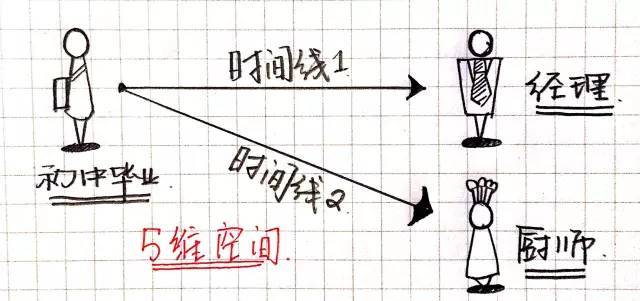 时间线1
经理
初中毕业
时间线2
5维空间
厨师